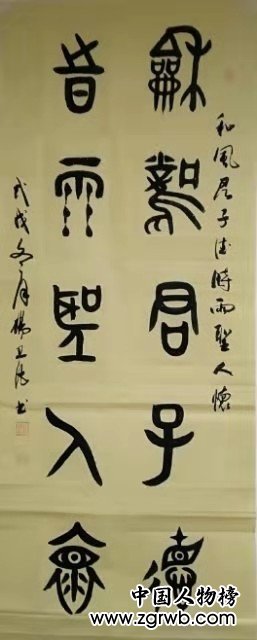 和風君子德時雨聖人懷
龢風君子德
旹雨聖人褱
戊戌冬月楊书
中国人物榜
www.zgrwb.com